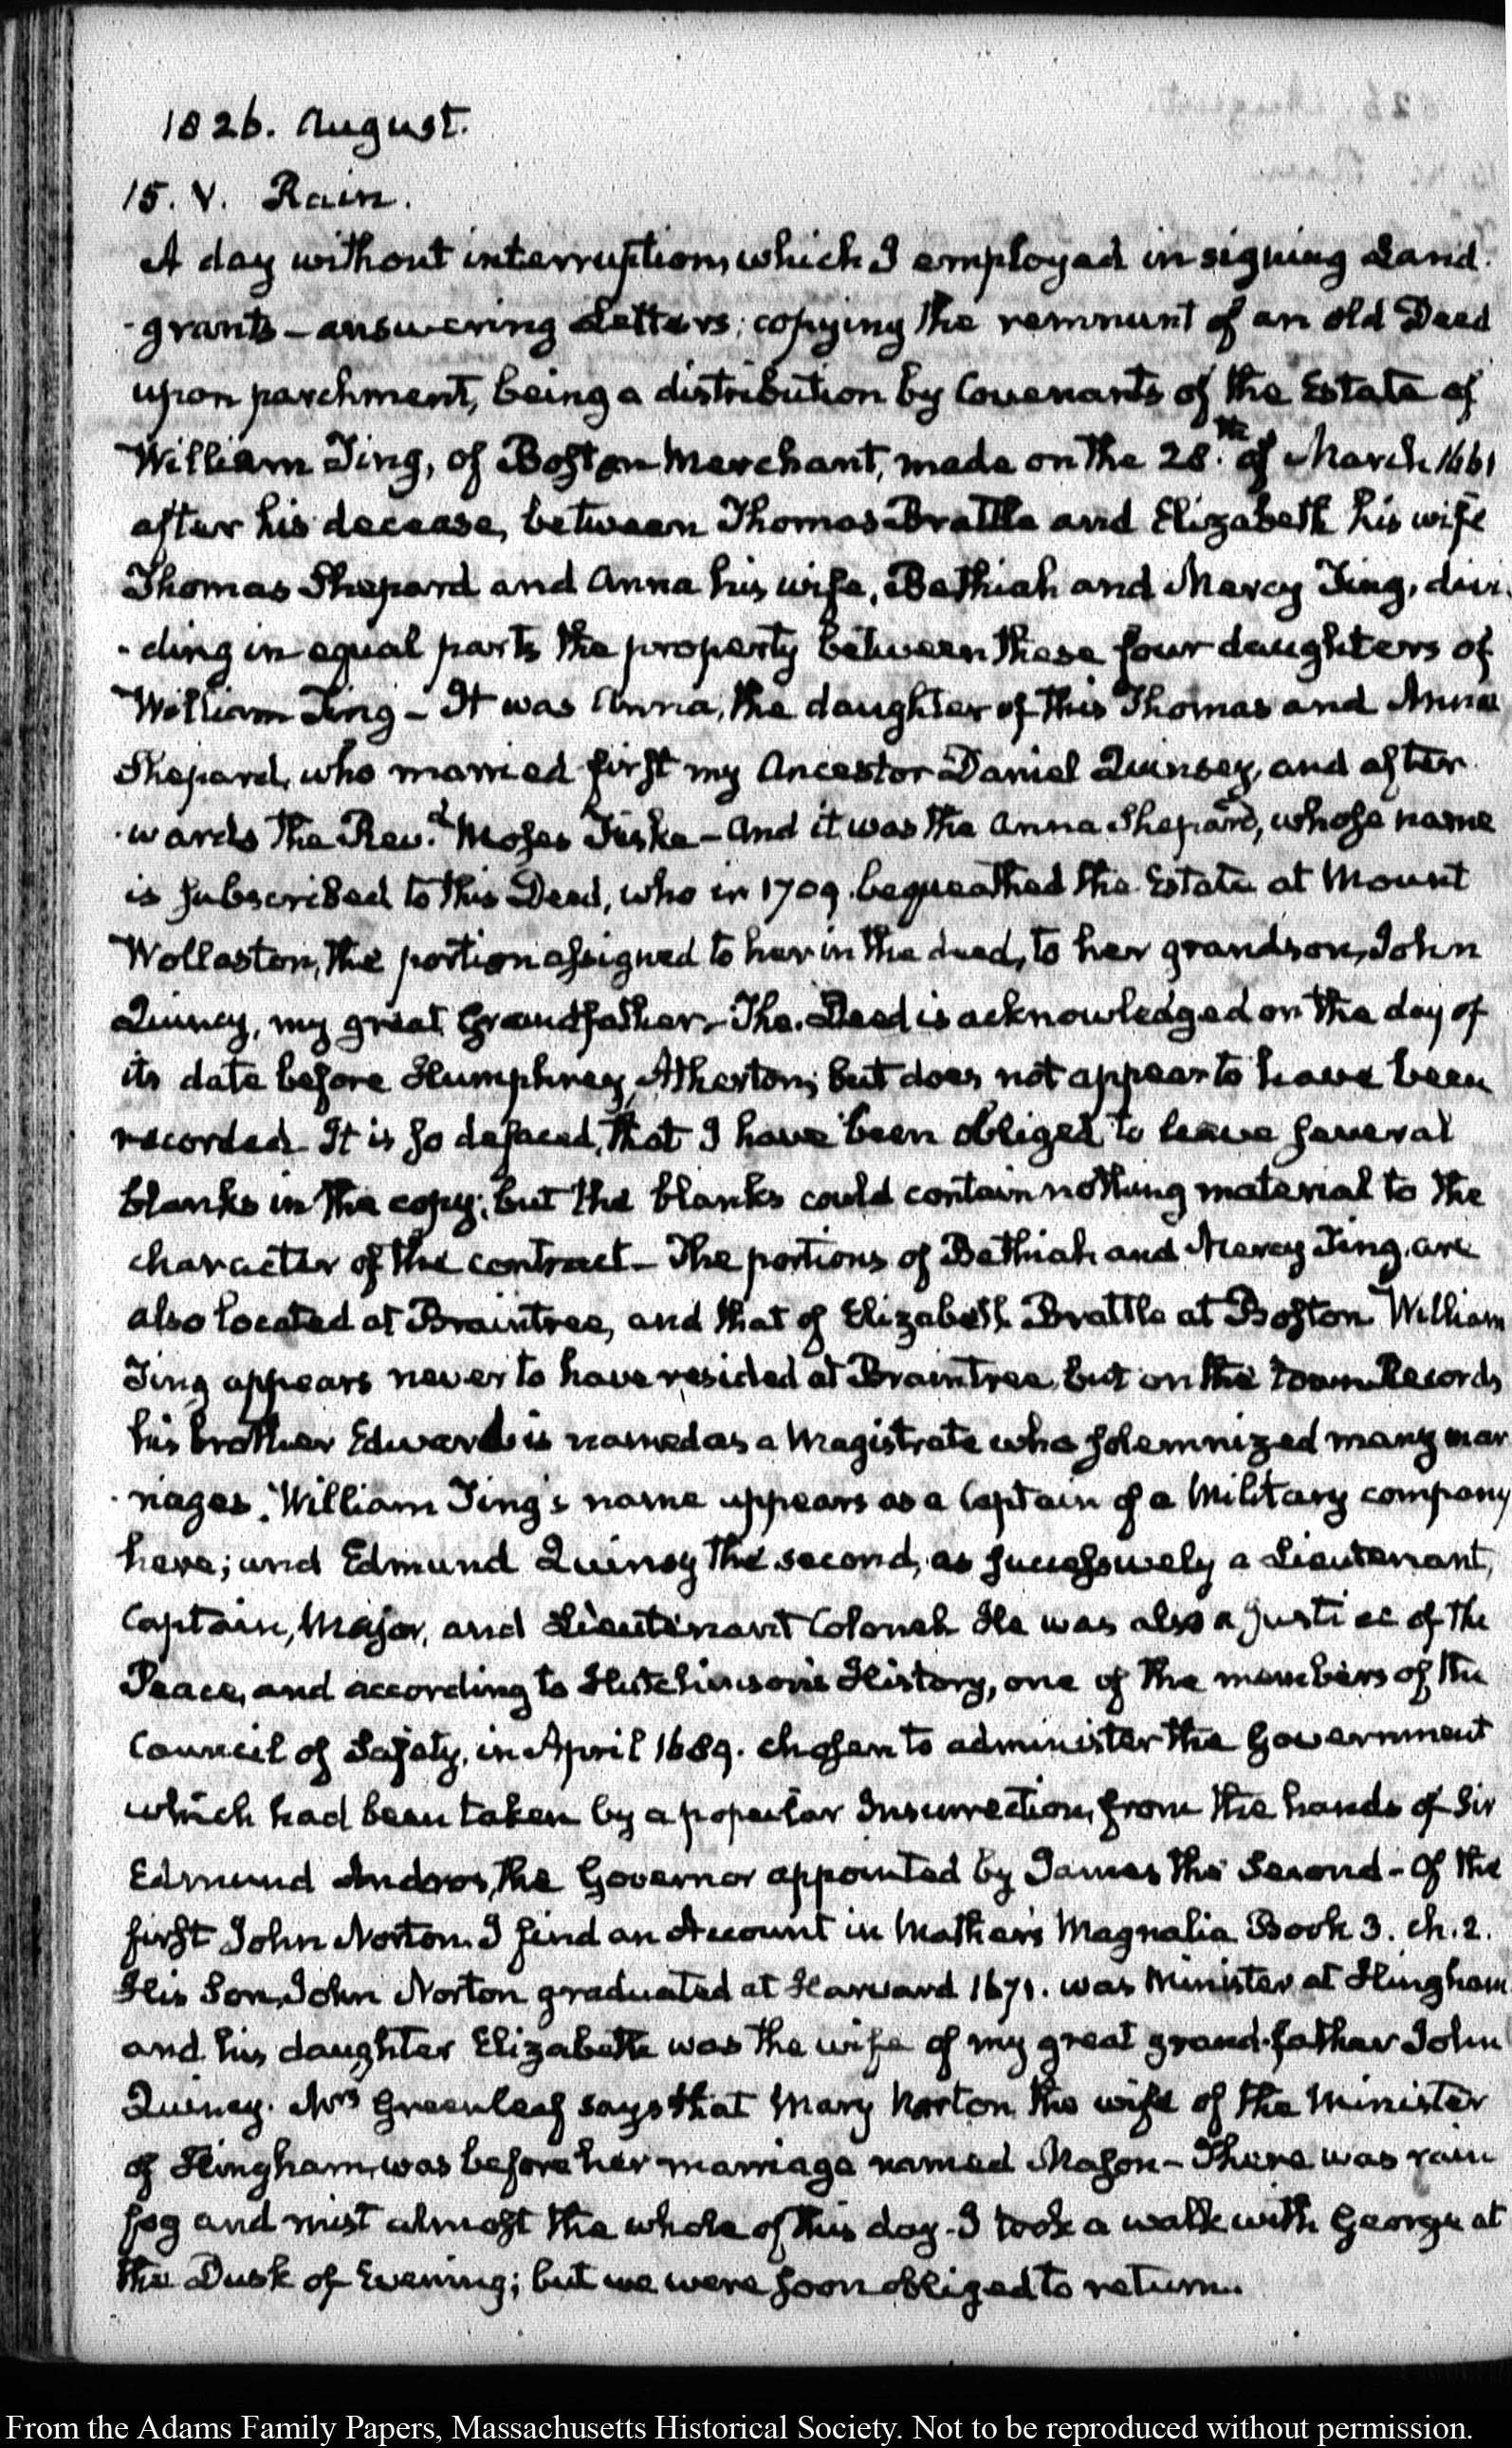 1826. August.
15. V. Rain.
A day without interruption, which I employed in signing Land-
-grants – answering Letters; copying the remnant of an old Deed
upon parchment, being a distribution by Covenants of the Estate of
William Ting, of Boston Merchant, made on the 28.th of March 1661
after his decease, between Thomas Brattle and Elizabeth his wife
Thomas Shepard and Anna his wife, Bethiah and Mercy Ting, divi-
-ding in equal parts the property between these four daughters of
William Ting – It was Anna, the daughter of this Thomas and Anna
Shepard, who married first my Ancestor Daniel Quinsey, and after-
-wards the Rev.d Moses Fiske – And it was the Anna Shepard, whose name
is subscribed to this Deed, who in 1709 bequeathed the Estate at Mount
Wollaston, the portion assigned to her in the deed, to her grandson, John
Quincy, my great Grandfather – The Deed is acknowledged on the day of
its date before Humphrey Atherton; but does not appear to have been
recorded. It is so defaced, that I have been obliged to leave several
blanks in the copy; but the blanks could contain nothing material to the
character of the contract – The portions of Bethiah and Mercy Ting are
also located at Braintree, and that of Elizabeth Brattle at Boston. William
Ting appears never to have resided at Braintree, but on the town Records
his brother Edward is named as a Magistrate who solemnized many mar
-riages. William Ting's name appears as a Captain of a Military company
here; and Edmund Quinsy the second, as successively a Lieutenant,
Captain, Major, and Lieutenant Colonel. He was also a Justice of the
Peace, and according to Hutchinson's History, one of the members of the
Council of Safety, in April 1689. chosen to administer the Government
which had been taken by a popular Insurrection, from the hands of Sir
Edmund Andros, the Governor appointed by James the Second – Of the
first John Norton I find an Account in Mather's Magnalia Book 3. ch. 2.
His Son, John Norton graduated at Harvard 1671. was Minister at Hingham
and his daughter Elizabeth was the wife of my great grand-father John
Quincy. Mrs Greenleaf says that Mary Norton the wife of the Minister
of Hingham, was before her marriage named Mason – There was rain
fog and mist almost the whole of this day – I took a walk with George at
the Dusk of Evening; but we were soon obliged to return.
From the Adams Family Papers, Massachusetts Historical Society. Not to be reproduced without permission.